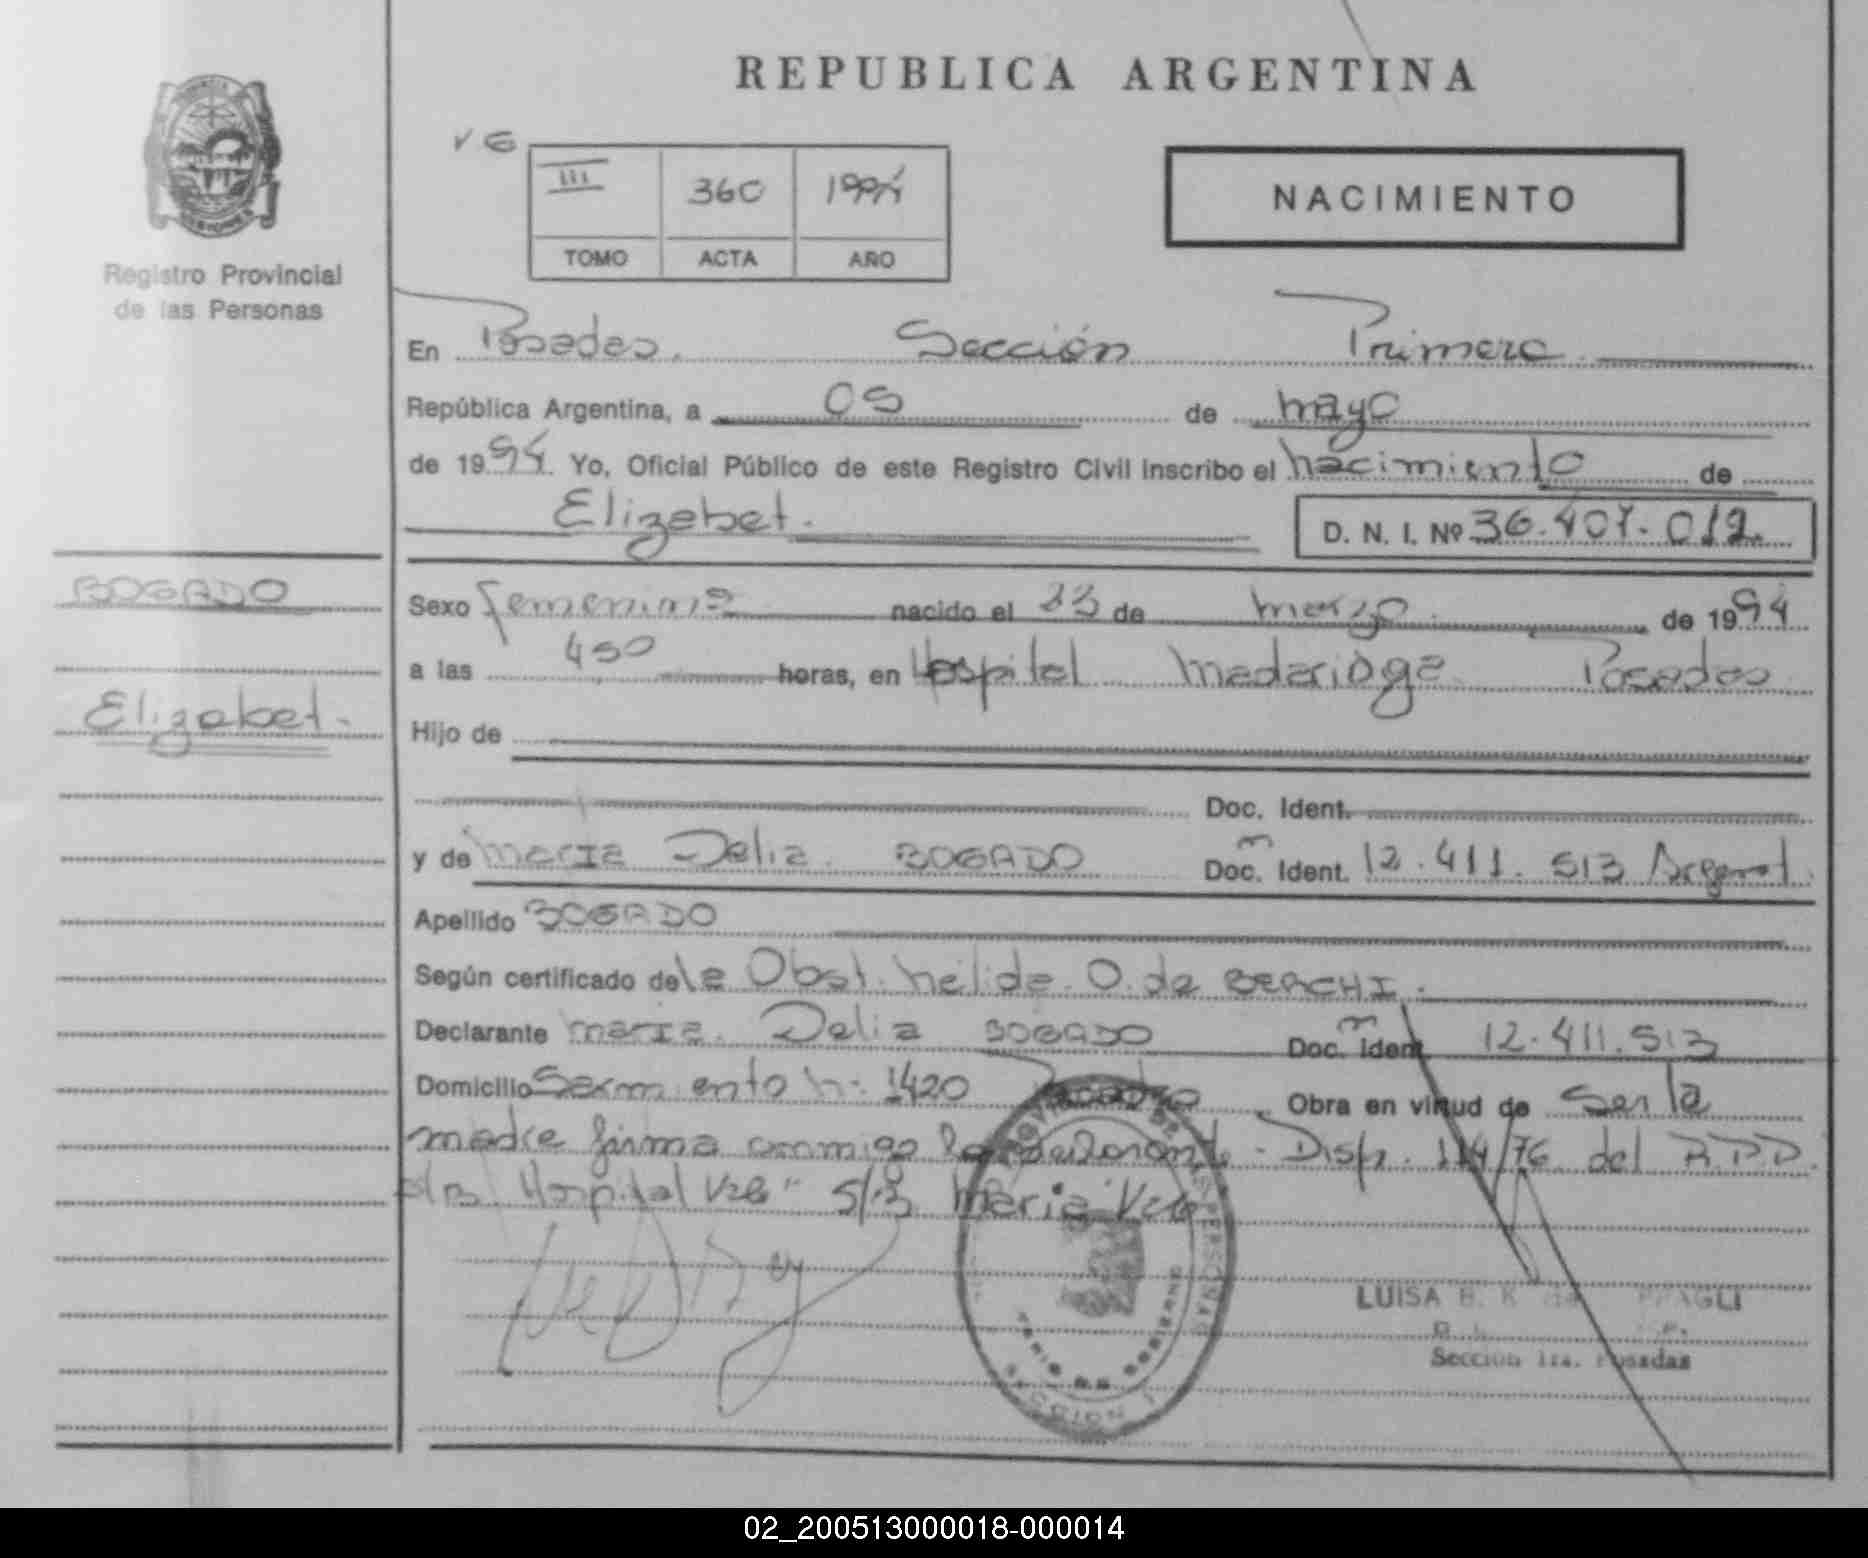 REPUBLICA ARGENTINA
Registro Provincial
de las Personas
III 360 1994
TOMO ACTA AÑO
NACIMIENTO
En Posadas. Sección Primera
República Argentina, a 05 de mayo
de 1994. Yo, Oficial Público de este Registro Civil inscribo el nacimiento de
Elizabet. D. N. I. Nº 36.407.012.
BOGADO
Elizabet.
Sexo femenino nacido el 23 de marzo de 1994
a las 450 horas, en Hospital Madariaga Posadas
Hijo de
Doc. Ident.
y de Maria Delia BOGADO Doc. Ident. 12.411.513 Argent.
Apellido BOGADO
Según certificado de la Obst. Nélida O. de BERCHI.
Declarante Maria Delia BOGADO Doc. Ident. 12.411.513
Domicilio Sarmiento N: 1420 Posadas Obra en virtud de Ser la
madre firma conmigo la declarante. Disp. 114/76 del R.P.P.
Hospital Vale S/B Maria Vale
LUISA B. K. de
Sección 1ra. Posadas
SECCION 1
02_200513000018-000014